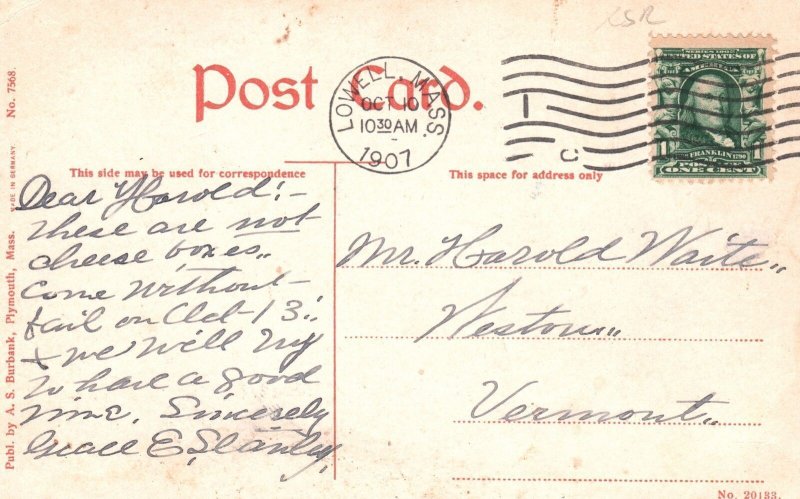 KSR
Post Card.
LOWELL, MASS.
OCT 10
10 30 AM
1907
1
C
SERIES 1902
UNITED STATES OF
AMERICA
FRANKLIN 1790
POSTAGE
ONE CENT
This side may be used for correspondence
This space for address only
Dear Harold:-
these are not
cheese boxes..
Come without
fail on Oct-13..
+ we will try
to have a good
time. Sincerely
Grace E. Stanley,
Mr. Harold Waite,,
Weston,,
Vermont,,
Publ. by A. S. Burbank, Plymouth, Mass. MADE IN GERMANY. No. 7568
No. 20133.